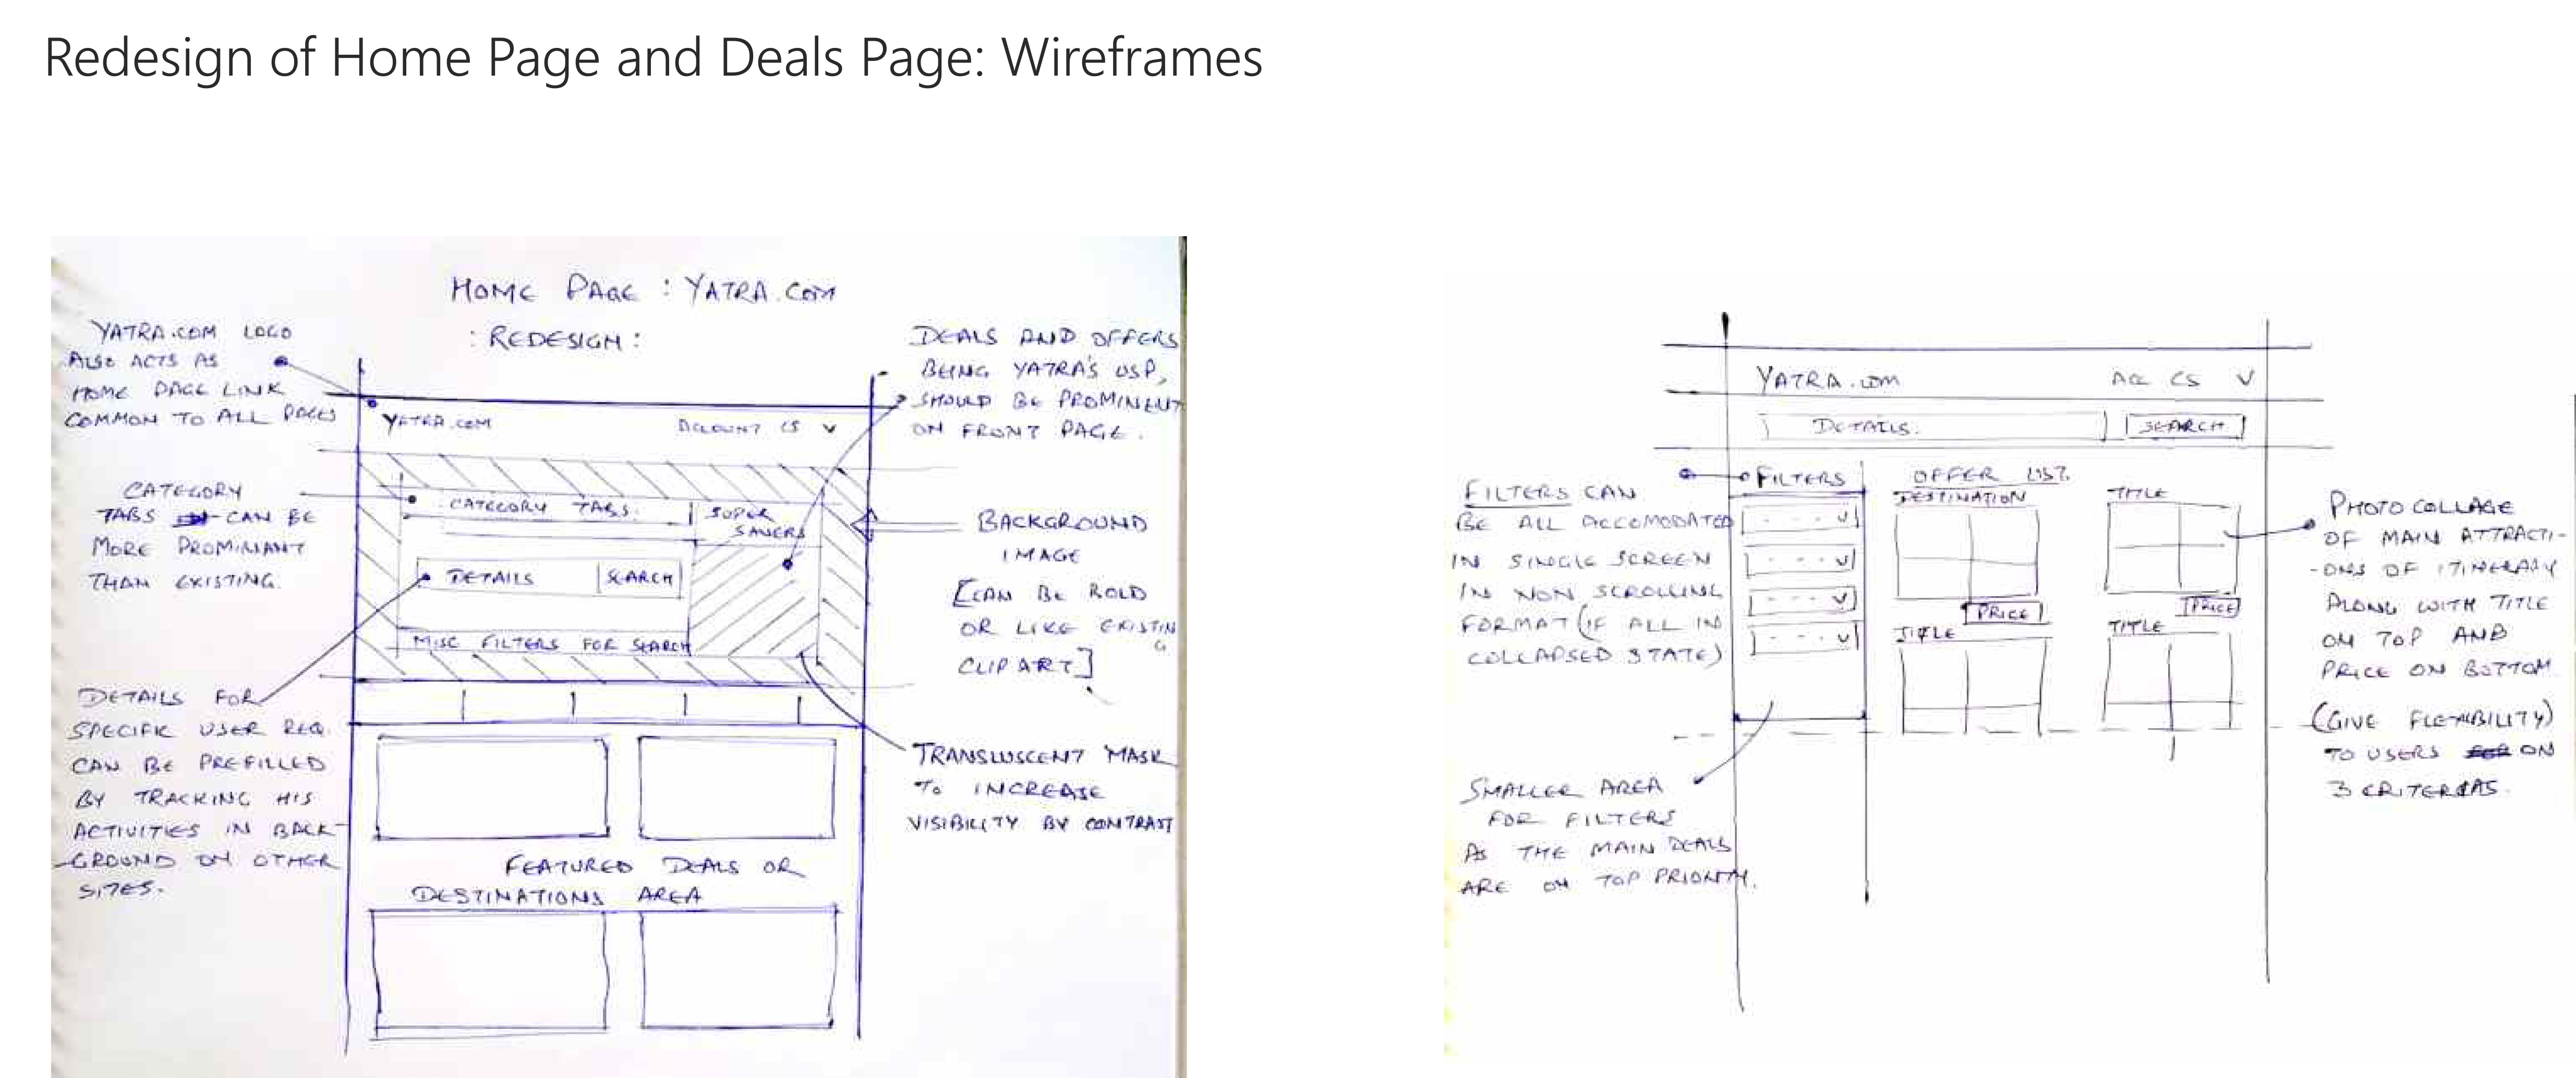 Redesign of Home Page and Deals Page: Wireframes
HOME PAGE : YATRA.COM
: REDESIGN :
YATRA.COM LOGO
ALSO ACTS AS
HOME PAGE LINK
COMMON TO ALL PAGES
CATEGORY
TABS CAN BE
MORE PROMINANT
THAN EXISTING.
DETAILS FOR
SPECIFIC USER REQ.
CAN BE PREFILLED
BY TRACKING HIS
ACTIVITIES IN BACK-
-GROUND ON OTHER
SITES.
YATRA.COM
ACCOUNT CS
: CATEGORY TABS.
SUPER
SAVERS
DETAILS
SEARCH
MISC FILTERS FOR SEARCH
FEATURED DEALS OR
DESTINATIONS AREA
DEALS AND OFFERS
BEING YATRA'S USP,
SHOULD BE PROMINENT
ON FRONT PAGE.
BACKGROUND
IMAGE
[CAN BE BOLD
OR LIKE EXISTIN
G
CLIPART]
TRANSLUSCENT MASK
TO INCREASE
VISIBILITY BY CONTRAST
YATRA.COM
ACC CS
DETAILS.
SEARCH
FILTERS
OFFER LIST.
DESTINATION
TITLE
PRICE
PRICE
TITLE
TITLE
FILTERS CAN
BE ALL ACCOMODATED
IN SINGLE SCREEN
IN NON SCROLLING
FORMAT (IF ALL IN
COLLAPSED STATE)
SMALLER AREA
FOR FILTERS
AS THE MAIN DEALS
ARE ON TOP PRIORITY.
PHOTO COLLAGE
OF MAIN ATTRACTI-
-ONS OF ITINERARY
ALONG WITH TITLE
ON TOP AND
PRICE ON BOTTOM
(GIVE FLEXIBILITY)
TO USERS ON
3 CRITERIAS.